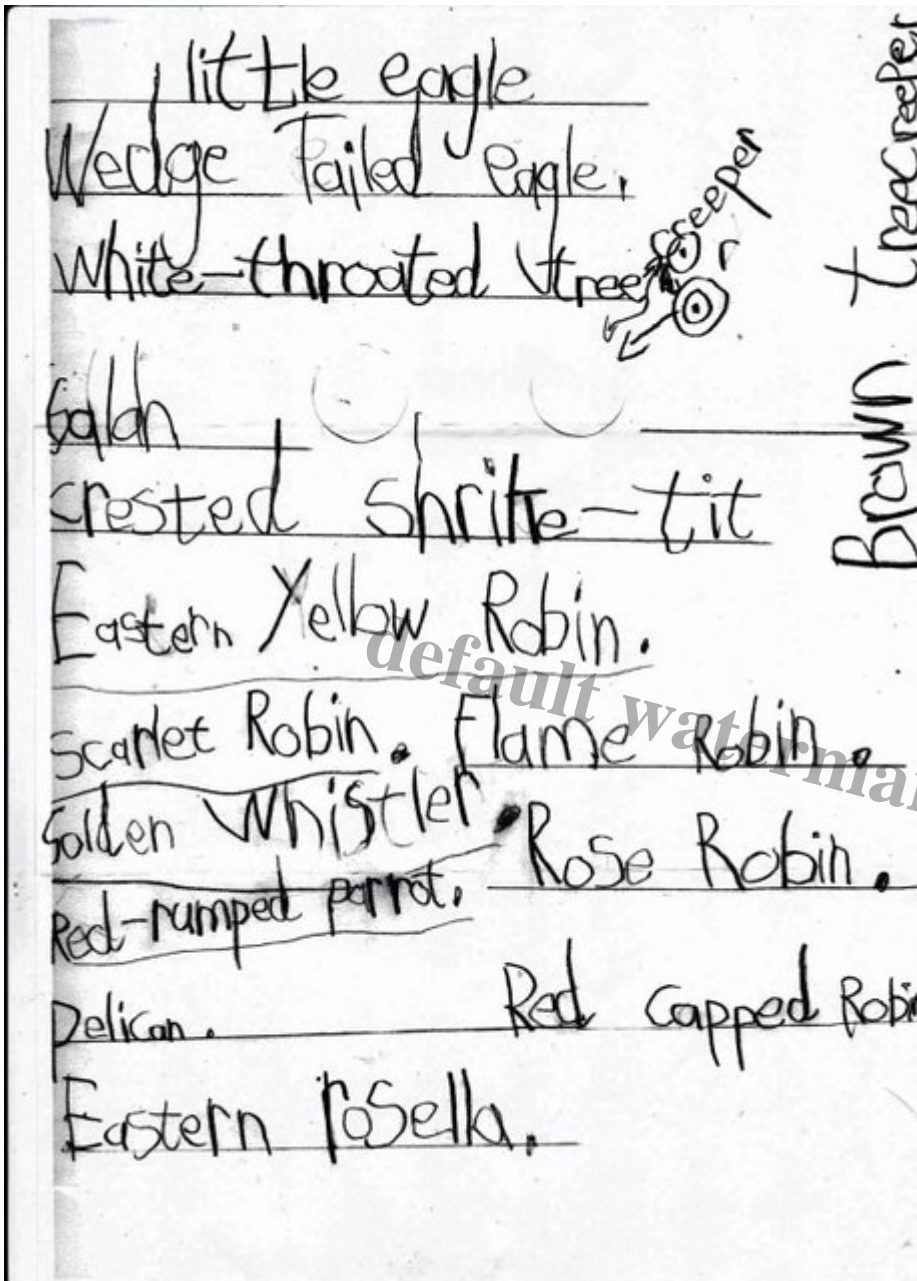 little eagle
Wedge Tailed eagle.
White-throated treecreeper
r
Galah
crested shrike-tit
Eastern Yellow Robin.
Scarlet Robin. Flame Robin.
Golden Whistler. Rose Robin.
Red-rumped parrot.
Pelican. Red Capped Robin
Eastern rosella.
Brown treecreeper
default watermar